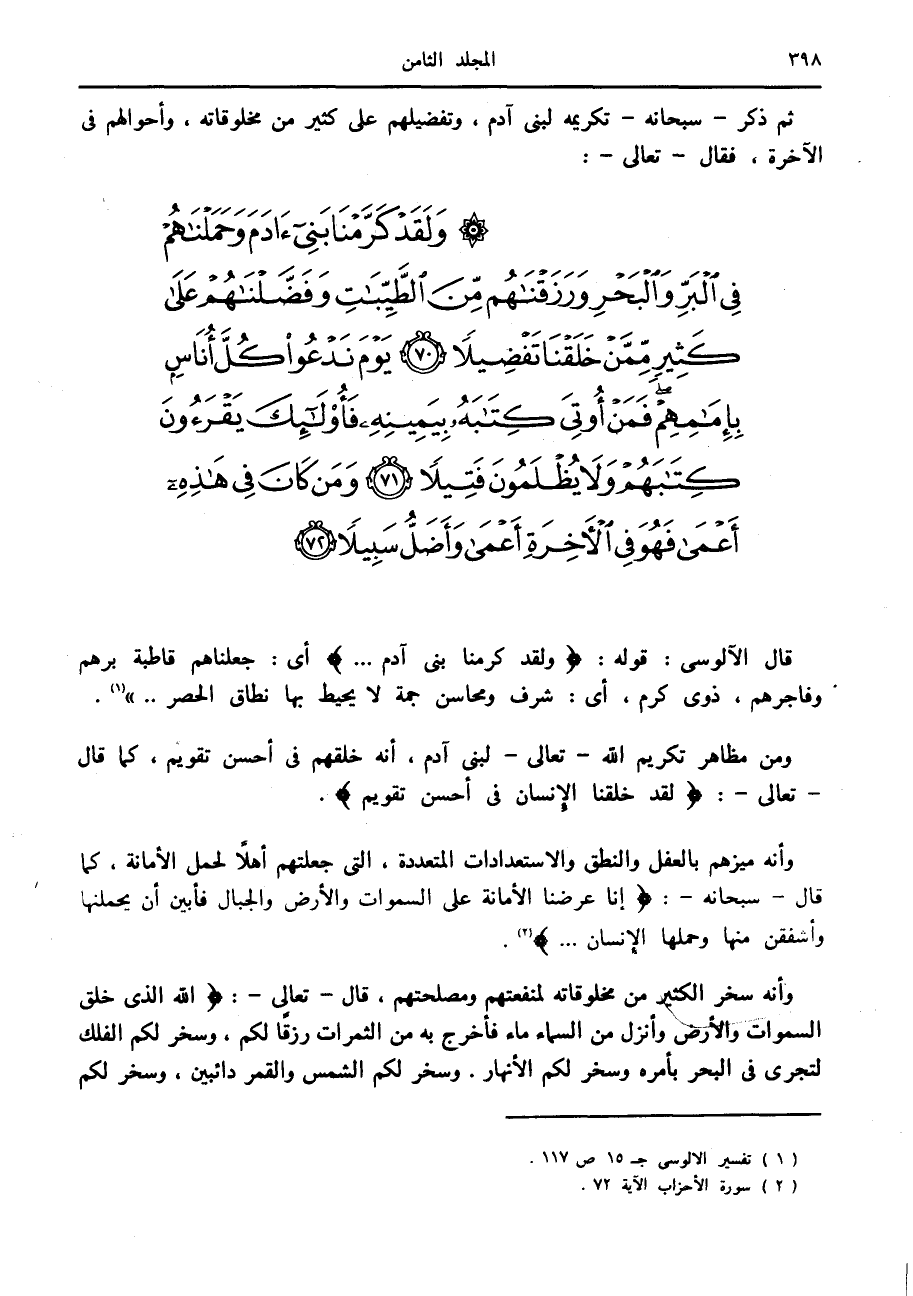 ٣٩٨ المجلد الثامن
ثم ذكر – سبحانه – تكريمه لبنى آدم ، وتفضيلهم على كثير من مخلوقاته ، وأحوالهم فى
الآخرة ، فقال – تعالى – :
۞ وَلَقَدْ كَرَّمْنَا بَنِىٓ ءَادَمَ وَحَمَلْنَٰهُمْ
فِى ٱلْبَرِّ وَٱلْبَحْرِ وَرَزَقْنَٰهُم مِّنَ ٱلطَّيِّبَٰتِ وَفَضَّلْنَٰهُمْ عَلَىٰ
كَثِيرٍ مِّمَّنْ خَلَقْنَا تَفْضِيلًا ﴿٧٠﴾ يَوْمَ نَدْعُوا۟ كُلَّ أُنَاسٍۭ
بِإِمَٰمِهِمْ ۖ فَمَنْ أُوتِىَ كِتَٰبَهُۥ بِيَمِينِهِۦ فَأُو۟لَٰٓئِكَ يَقْرَءُونَ
كِتَٰبَهُمْ وَلَا يُظْلَمُونَ فَتِيلًا ﴿٧١﴾ وَمَن كَانَ فِى هَٰذِهِۦٓ
أَعْمَىٰ فَهُوَ فِى ٱلْأَخِرَةِ أَعْمَىٰ وَأَضَلُّ سَبِيلًا ﴿٧٢﴾
قال الآلوسى : قوله : ﴿ ولقد كرمنا بنى آدم ... ﴾ أى : جعلناهم قاطبة برهم
وفاجرهم ، ذوى كرم ، أى : شرف ومحاسن جمة لا يحيط بها نطاق الحصر .. »(١) .
ومن مظاهر تكريم الله – تعالى – لبنى آدم ، أنه خلقهم فى أحسن تقويم ، كما قال
– تعالى – : ﴿ لقد خلقنا الإنسان فى أحسن تقويم ﴾ .
وأنه ميزهم بالعقل والنطق والاستعدادات المتعددة ، التى جعلتهم أهلًا لحمل الأمانة ، كما
قال – سبحانه – : ﴿ إنا عرضنا الأمانة على السموات والأرض والجبال فأبين أن يحملنها
وأشفقن منها وحملها الإنسان ... ﴾(٢) .
وأنه سخر الكثير من مخلوقاته لمنفعتهم ومصلحتهم ، قال – تعالى – : ﴿ الله الذى خلق
السموات والأرض وأنزل من السماء ماء فأخرج به من الثمرات رزقًا لكم ، وسخر لكم الفلك
لتجرى فى البحر بأمره وسخر لكم الأنهار . وسخر لكم الشمس والقمر دائبين ، وسخر لكم
( ١ ) تفسير الالوسى جـ ١٥ ص ١١٧ .
( ٢ ) سورة الأحزاب الآية ٧٢ .